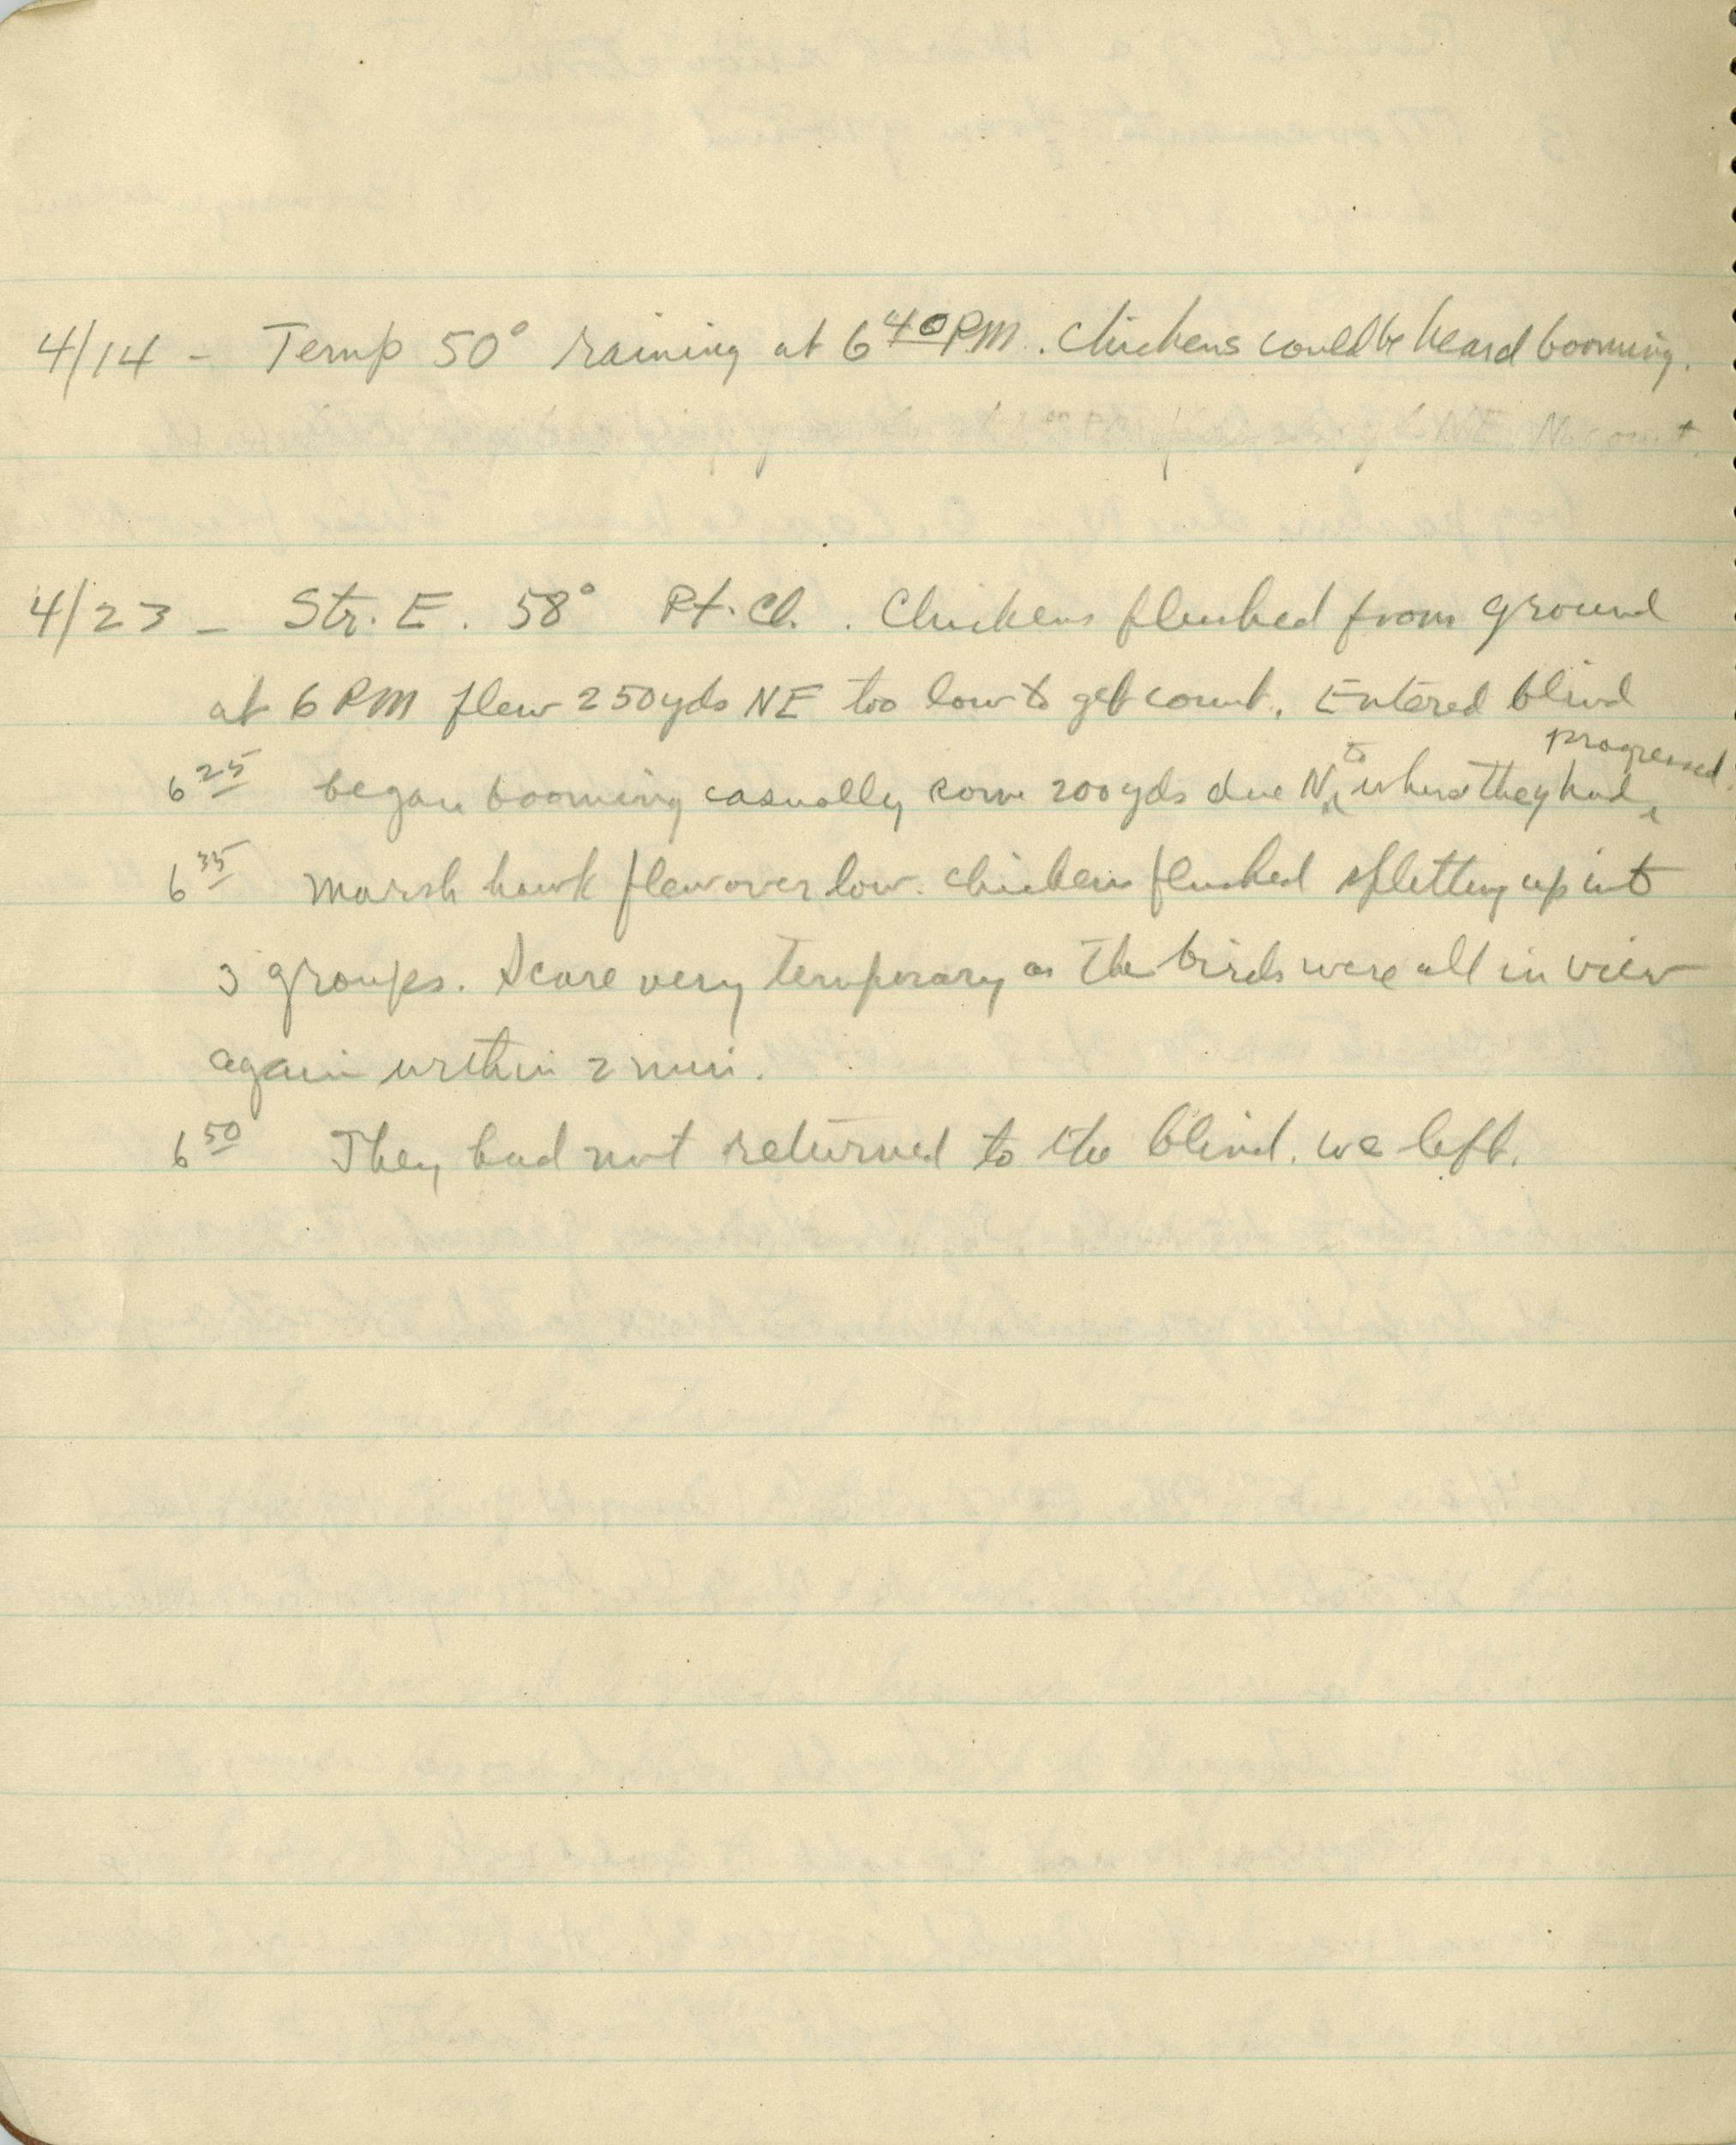 4/14 - Temp 50° raining at 6 40 PM. Chickens could be heard booming.
NE No count
4/23 - Str. E. 58° Pt. Cl. . Chickens flushed from ground
at 6 PM flew 250 yds NE too low to get count. Entered blind
6 25 began booming casually some 200 yds due N to where they had progressed
6 35 Marsh hawk flew over low. Chickens flushed splitting up into
3 groups. Scare very temporary as the birds were all in view
again within 2 min.
6 50 They had not returned to the blind. We left.